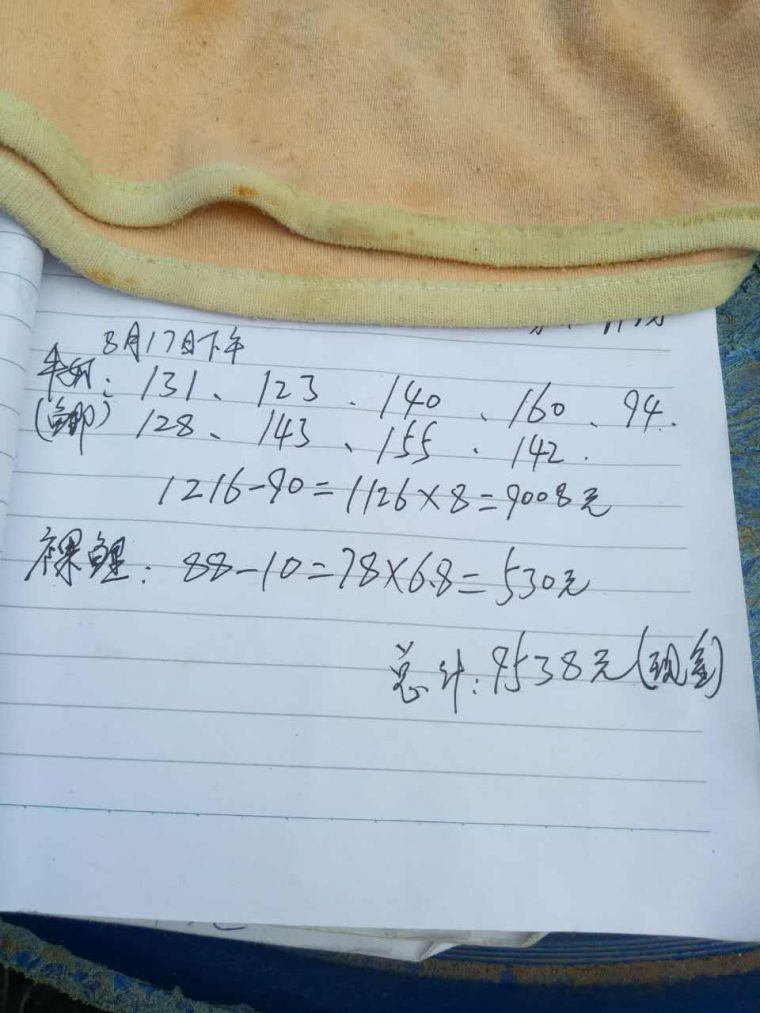 8月17日下午
131、123、140、160、94.
(鲫) 128、143、155、142.
1216-90=1126×8=9008元
裸鲤: 88-10=78×6.8=530元
总计: 9538元(现金)